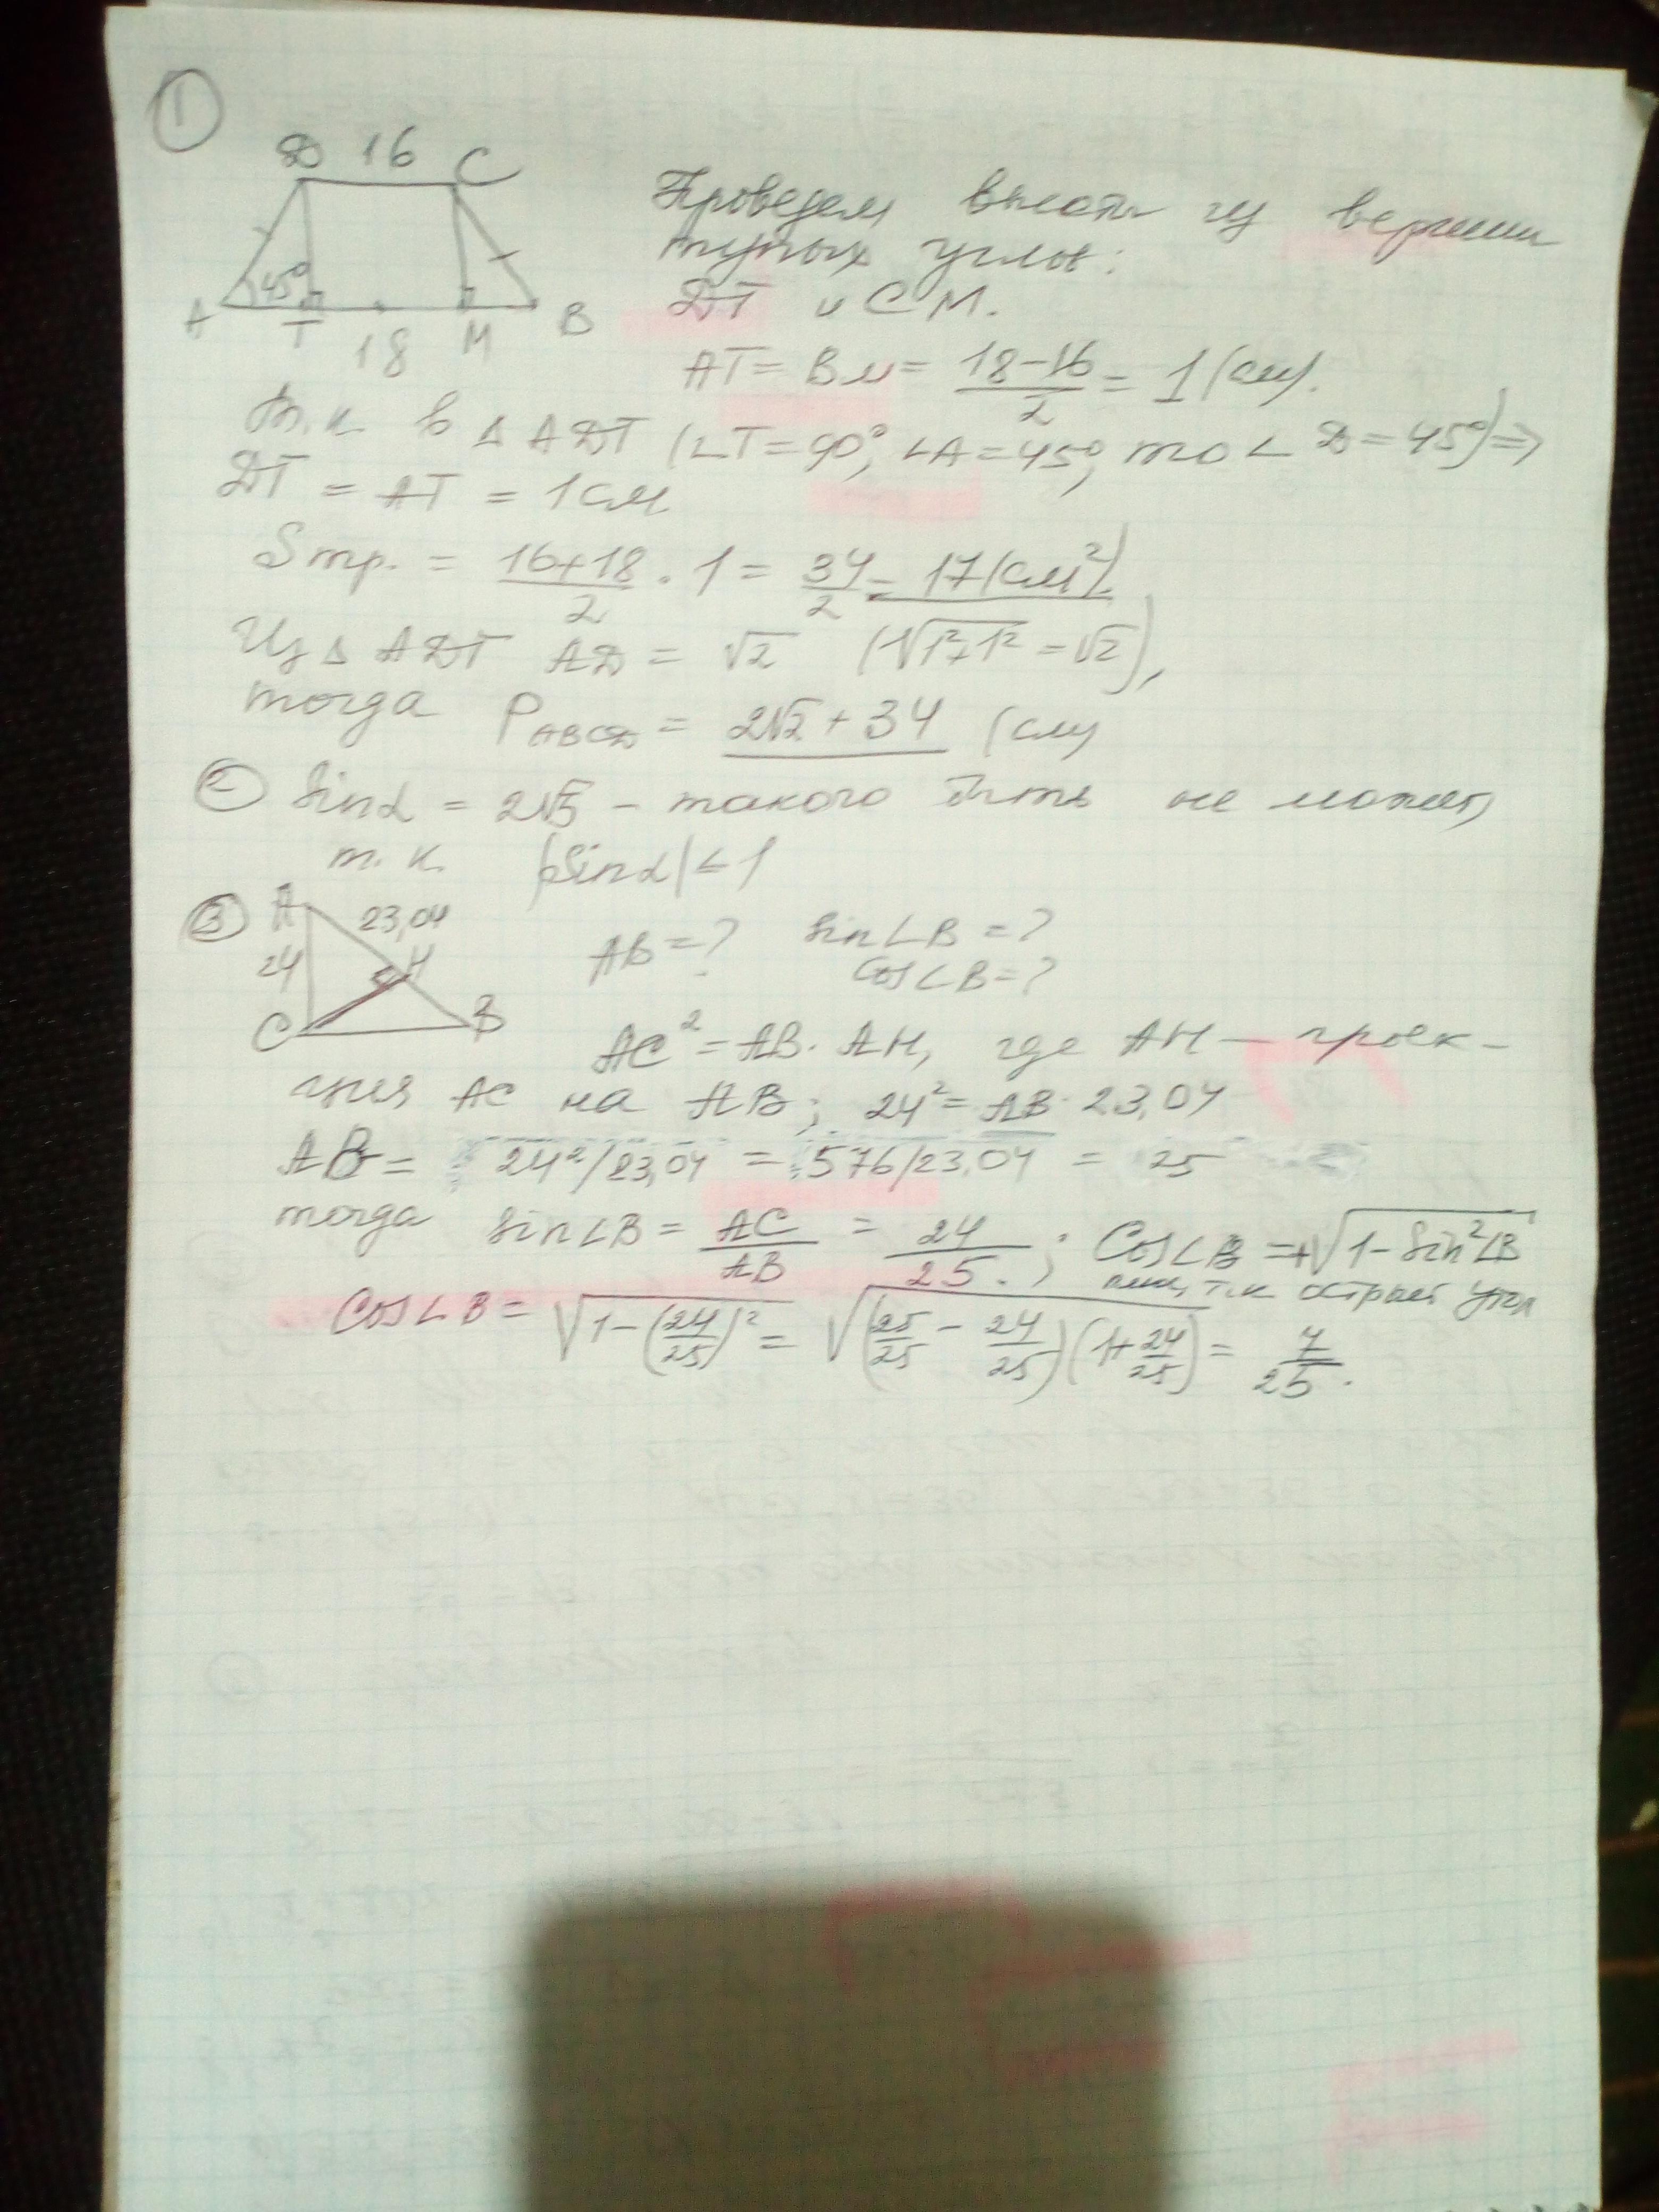 1
D 16 C
Проведем высоты из вершин
тупых углов:
45°
A T 18 M B
DT и CM.
AT = BM = (18-16)/2 = 1 (см).
т.к. в △ ADT (∠T=90°, ∠A=45°, то ∠ D=45°) ⇒
DT = AT = 1 см
Sтр. = (16+18)/2 · 1 = 34/2 = 17 (см²).
Из △ ADT AD = √2 (√(1²+1²) = √2),
тогда P ABCD = 2√2 + 34 (см)
2 Sin α = 2√5 – такого быть не может,
т.к. |Sin α| < 1
3 A 23,04
24 H
C B
AB = ? Sin∠B = ?
Cos∠B = ?
AC² = AB · AH, где AH – проек-
ция AC на AB; 24² = AB · 23,04
AB = 24²/23,04 = 576/23,04 = 25
тогда Sin∠B = AC/AB = 24/25.; Cos∠B = +√(1-Sin²∠B)
т.к. острый угол
Cos∠B = √(1-(24/25)²) = √((25/25 - 24/25)(1+24/25)) = 7/25.